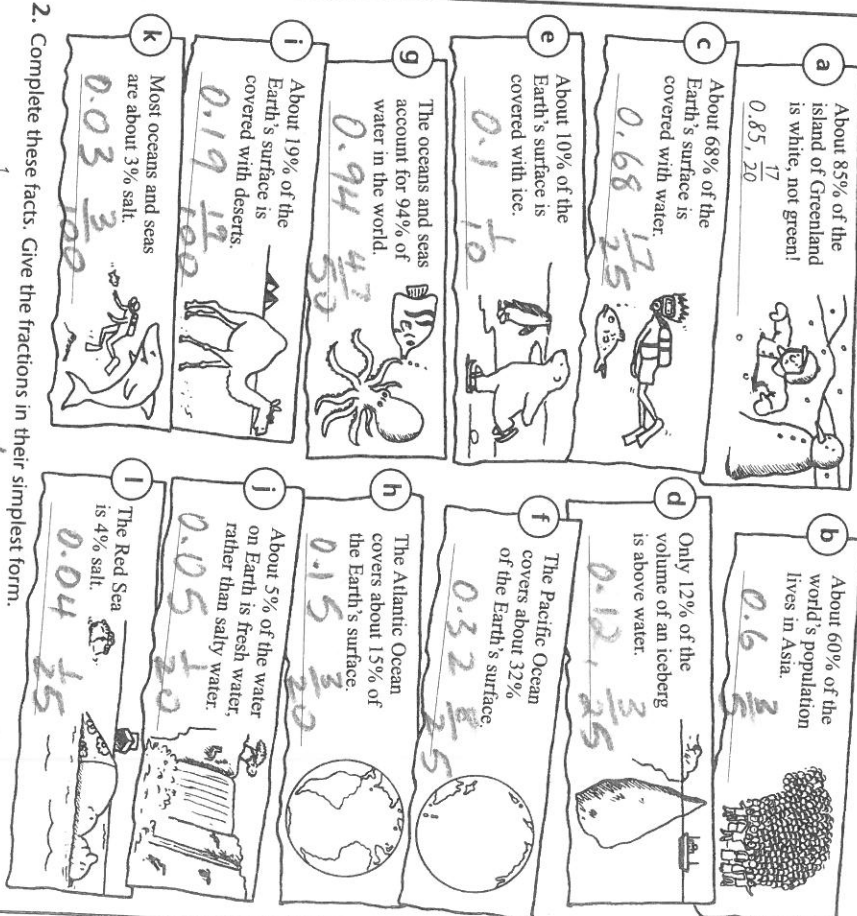 a
About 85% of the
island of Greenland
is white, not green!
0.85, 17/20
b
About 60% of the
world's population
lives in Asia.
0.6 3/5
c
About 68% of the
Earth's surface is
covered with water.
0.68 17/25
d
Only 12% of the
volume of an iceberg
is above water.
0.12, 3/25
e
About 10% of the
Earth's surface is
covered with ice.
0.1 1/10
f
The Pacific Ocean
covers about 32%
of the Earth's surface.
0.32 8/25
g
The oceans and seas
account for 94% of
water in the world.
0.94 47/50
h
The Atlantic Ocean
covers about 15% of
the Earth's surface.
0.15 3/20
i
About 19% of the
Earth's surface is
covered with deserts.
0.19 19/100
j
About 5% of the water
on Earth is fresh water,
rather than salty water.
0.05 1/20
k
Most oceans and seas
are about 3% salt.
0.03 3/100
l
The Red Sea
is 4% salt.
0.04 1/25
2. Complete these facts. Give the fractions in their simplest form.